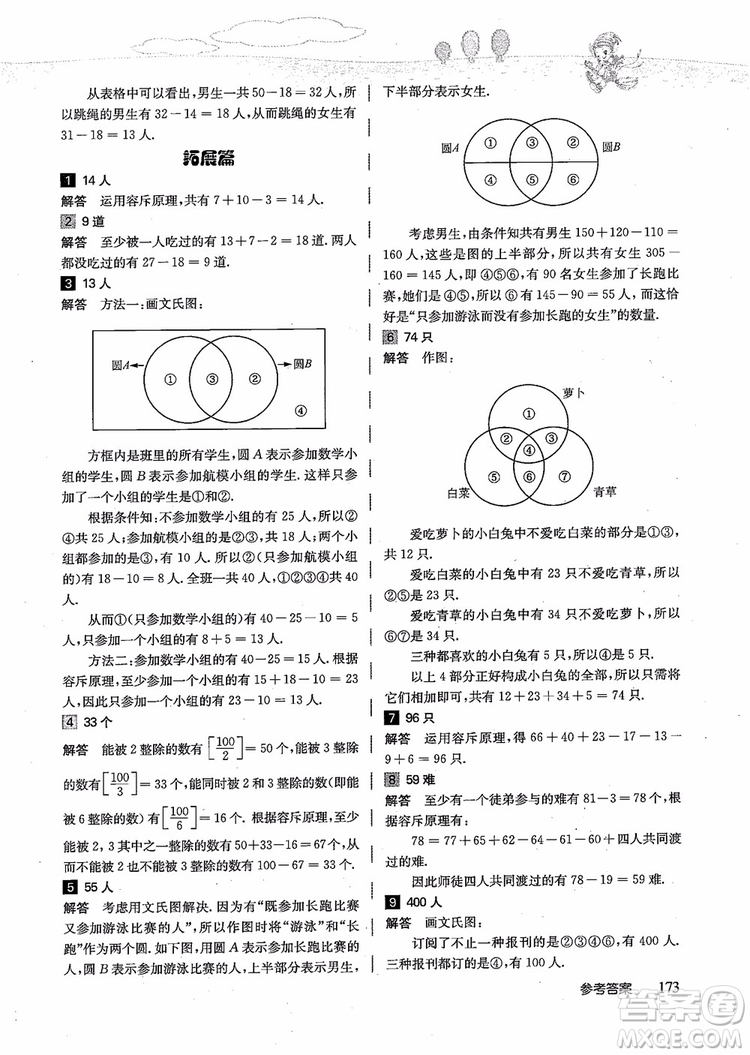 从表格中可以看出，男生一共 50－18＝32 人，所
以跳绳的男生有 32－14＝18 人，从而跳绳的女生有
31－18＝13 人.
拓展篇
1 14 人
解答 运用容斥原理，共有 7＋10－3＝14 人.
2 9 道
解答 至少被一人吃过的有 13＋7－2＝18 道. 两人
都没吃过的有 27－18＝9 道.
3 13 人
解答 方法一：画文氏图：
圆A ① ③ ② 圆B
④
方框内是班里的所有学生，圆 A 表示参加数学小
组的学生，圆 B 表示参加航模小组的学生. 这样只参
加了一个小组的学生是①和②.
根据条件知：不参加数学小组的有 25 人，所以②
④共 25 人；参加航模小组的②③，共 18 人；两个小组
都参加的是③，有 10 人. 所以②（只参加航模小组的）
有 18－10＝8 人. 全班一共①②③④四部分，有 40
人.
从而①（只参加数学小组的）有 40－25－10＝5
人，只参加一个小组的有 8＋5＝13 人.
方法二：参加数学小组的有 40－25＝15 人. 根据
容斥原理，至少参加一个小组的有 15＋18－10＝23
人，因此只参加一个小组的有 23－10＝13 人.
4 33 个
解答 能被 2 整除的数有[100/2]＝50 个，能被 3 整
除的数有[100/3]＝33 个，能同时被 2、3 整除的数（即能
被 6 整除的数）有[100/6]＝16 个. 根据容斥原理，至少
能被 2，3 其中之一整除的数有 50＋33－16＝67 个，从
而不能被 2 也不能被 3 整除的有 100－67＝33 个.
5 55 人
解答 考虑用文氏图解决. 因为有“既参加长跑比赛
又参加游泳比赛的人”，所以作图时要把“游泳”和“长
跑”作为两个圆. 如下图，用圆 A 表示参加长跑比赛的
人，圆 B 表示参加游泳比赛的人，上半部分表示男生，
下半部分表示女生.
圆A ① ③ ② 圆B
④ ⑤ ⑥
考虑男生，由条件知共有男生 150＋120－110＝
160 人，这些是图的上半部分，所以共有女生 305－
160＝145 人，即④⑤⑥；又有 90 名女生参加长跑比
赛，她们是④⑤，所以⑥有 145－90＝55 人. 而这恰
好是“只参加游泳而没有参加长跑的女生”的数量.
6 74 只
解答 作图：
萝卜
①
② ③
④
⑤ ⑥ ⑦
白菜 青草
爱吃萝卜的小白兔中不爱吃白菜的部分是①③，
共 12 只.
爱吃白菜的小白兔中不爱吃青草，所以
②⑤是 23 只.
爱吃青草的小白兔中有 34 只不爱吃萝卜，所以
⑥⑦是 34 只.
三种都喜欢的小白兔是④，有 5 只.
以上 4 部分正好构成小白兔的总数，所以只需将
它们相加即可：12＋23＋34＋5＝74 只.
7 96 只
解答 运用容斥原理，得 66＋40＋23－17－13－
9＋6＝96 只.
8 59 难
解答 至少有一个徒弟参与的难有 81－3＝78 难.
78＝77＋55＋65－60－50－68＋四人共同渡
过的难.
因此师徒四人共同渡过的有 78－19＝59 难.
9 400 人
解答 画文氏图：
订阅了不止一种报刊的是②③④⑥，有 400 人.
三种报刊都订的是④，有 100 人. 所以②③⑥有
参考答案 173
答案圈